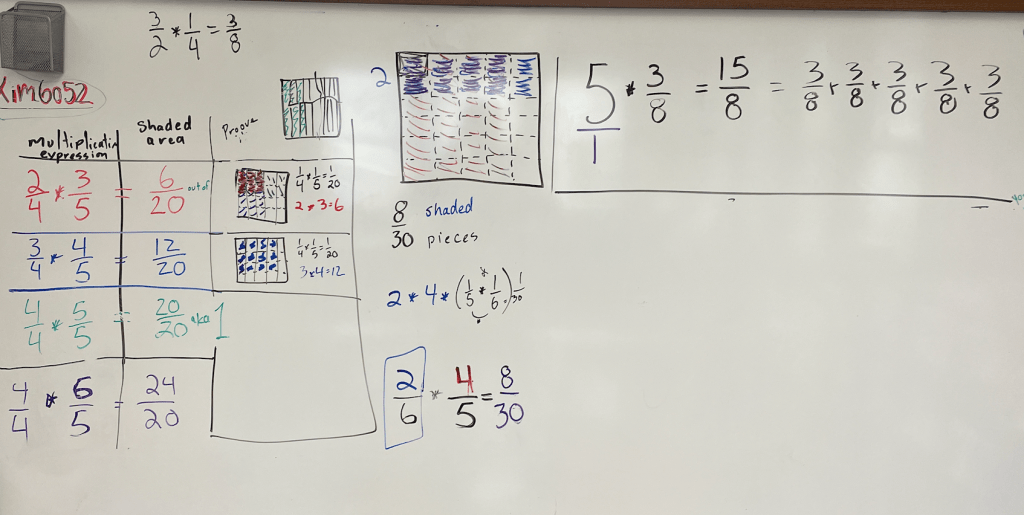 3/2 * 1/4 = 3/8
Kim6052
multiplication expression
Shaded area
Proove
2/4 * 3/5 = 6/20 out of
1/4 * 1/5 = 1/20
2 * 3 = 6
3/4 * 4/5 = 12/20
1/4 * 1/5 = 1/20
3 * 4 = 12
4/4 * 5/5 = 20/20 aka 1
4/4 * 6/5 = 24/20
2
8 shaded
30 pieces
2 * 4 * (1/5 * 1/6) 1/30
2/6 * 4/5 = 8/30
5/1 * 3/8 = 15/8 = 3/8 + 3/8 + 3/8 + 3/8 + 3/8